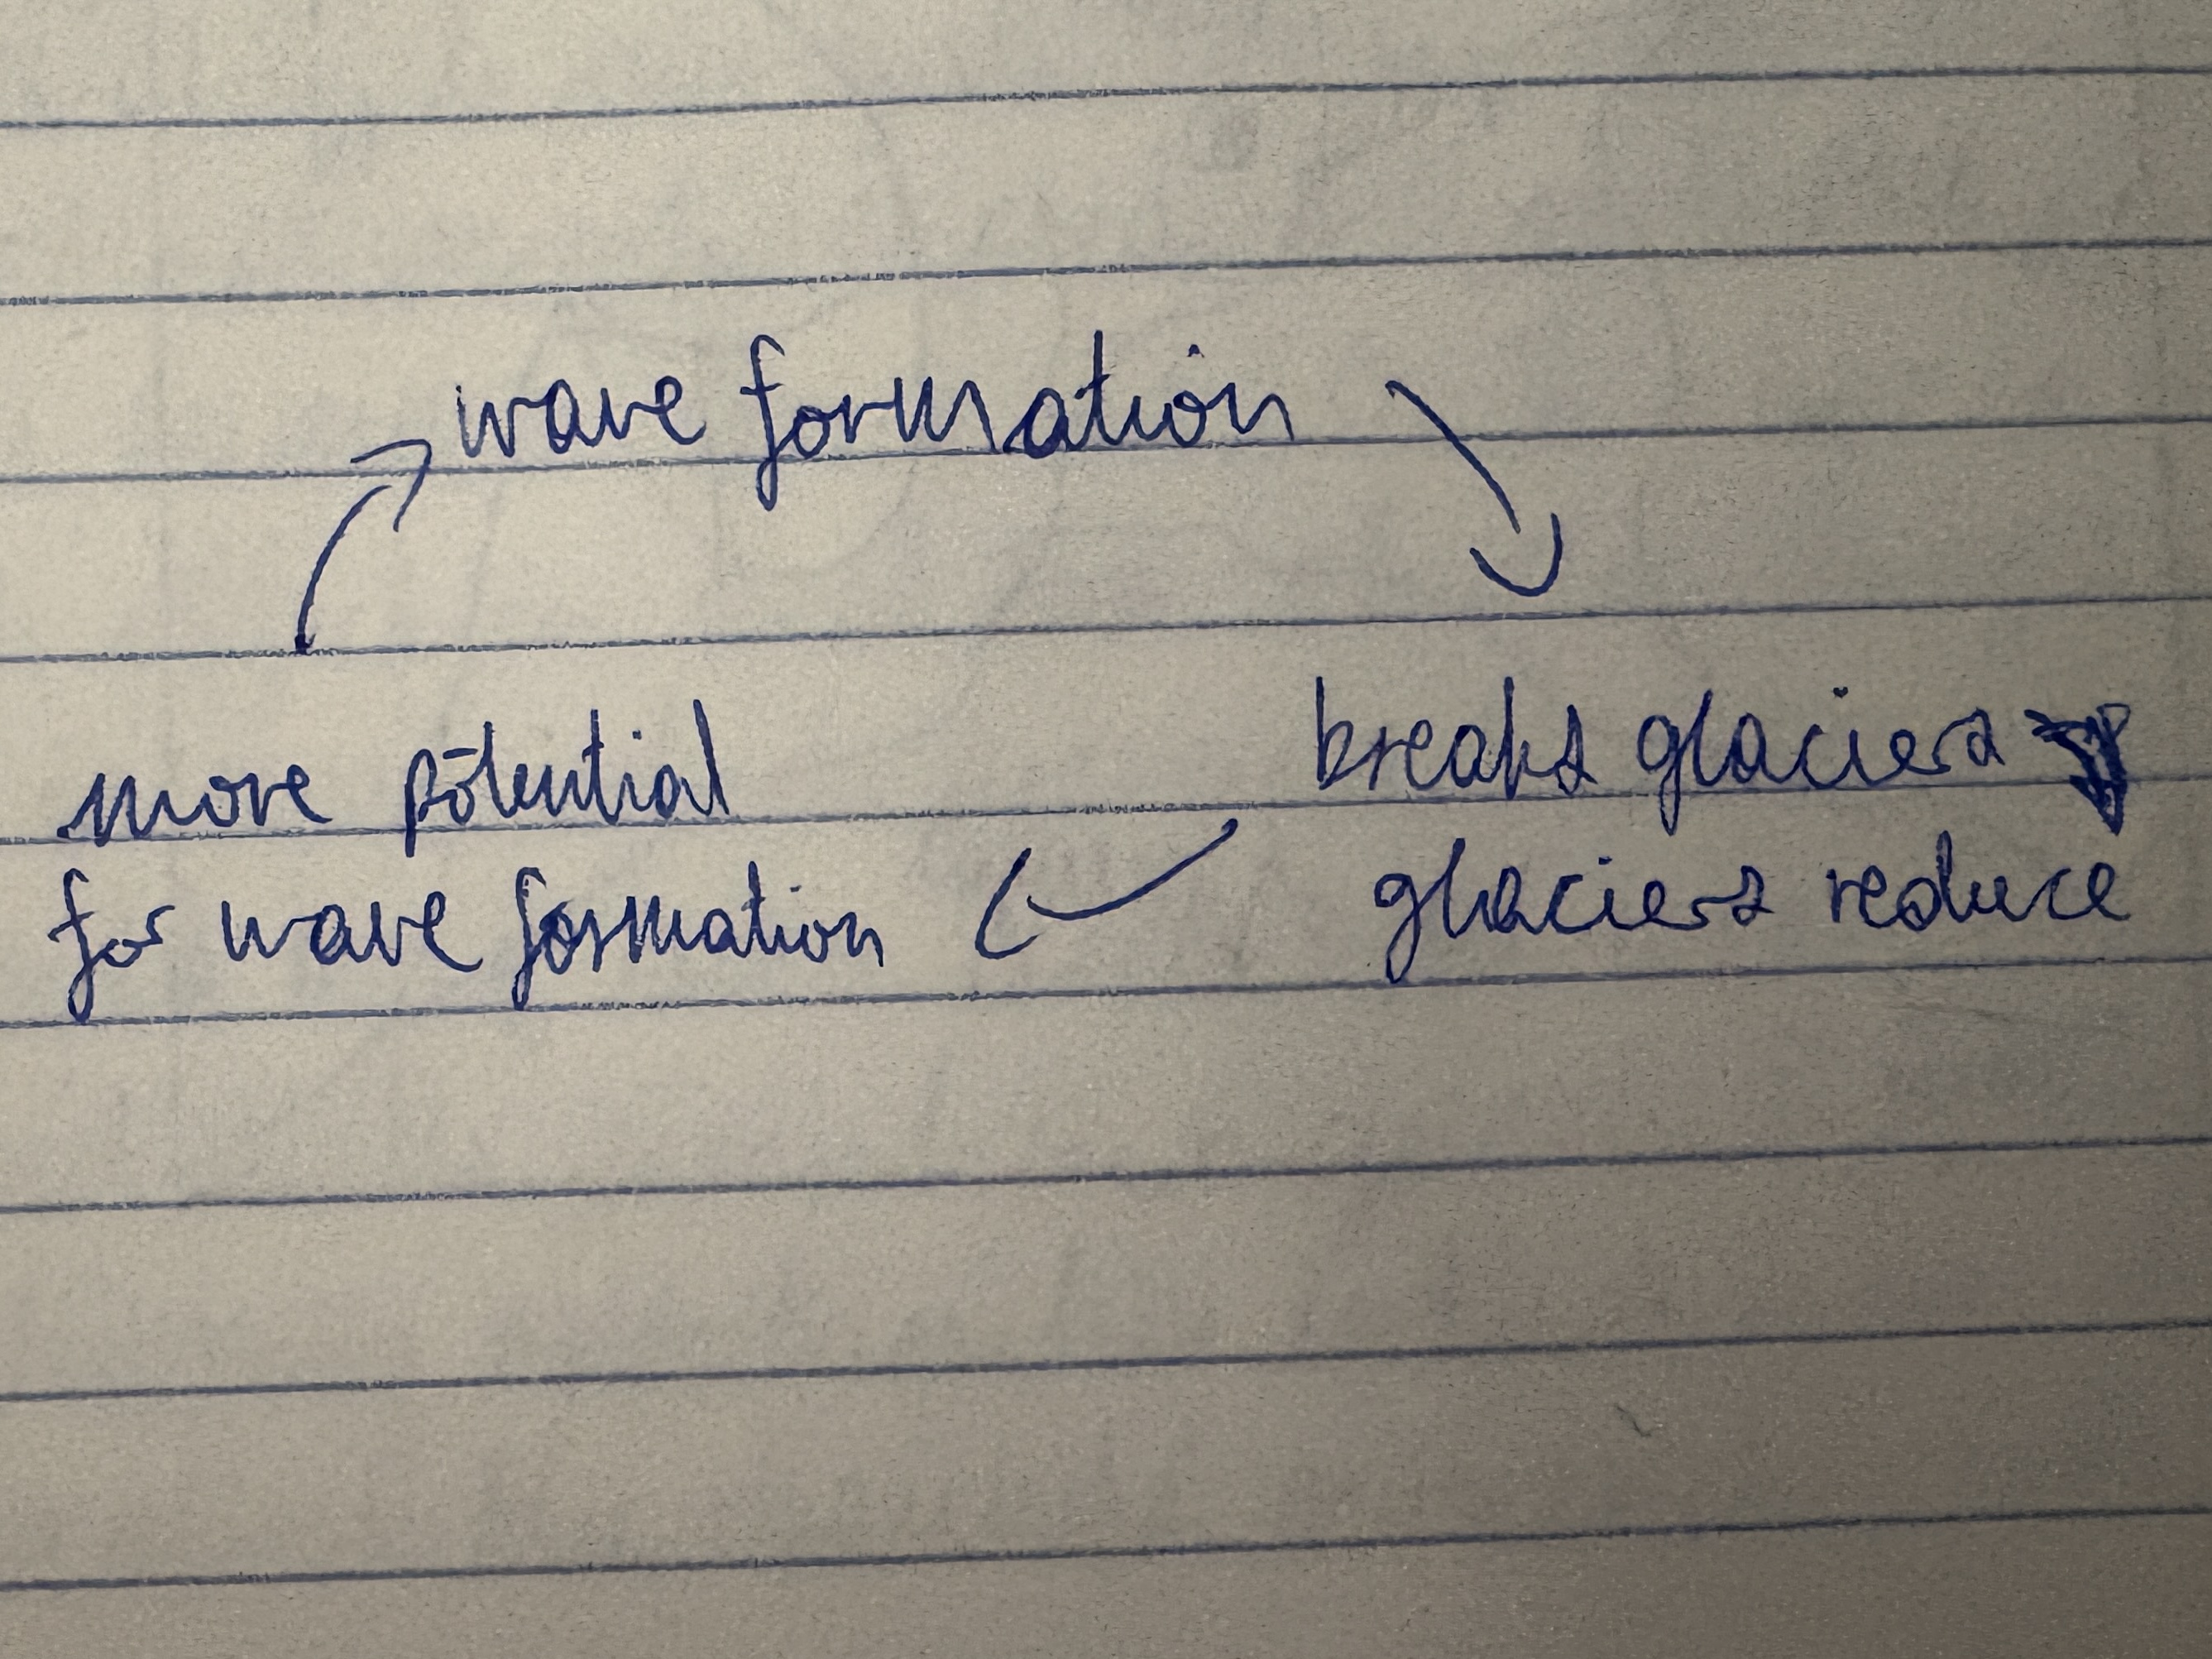 wave formation
breaks glaciers
glaciers reduce
more potential
for wave formation